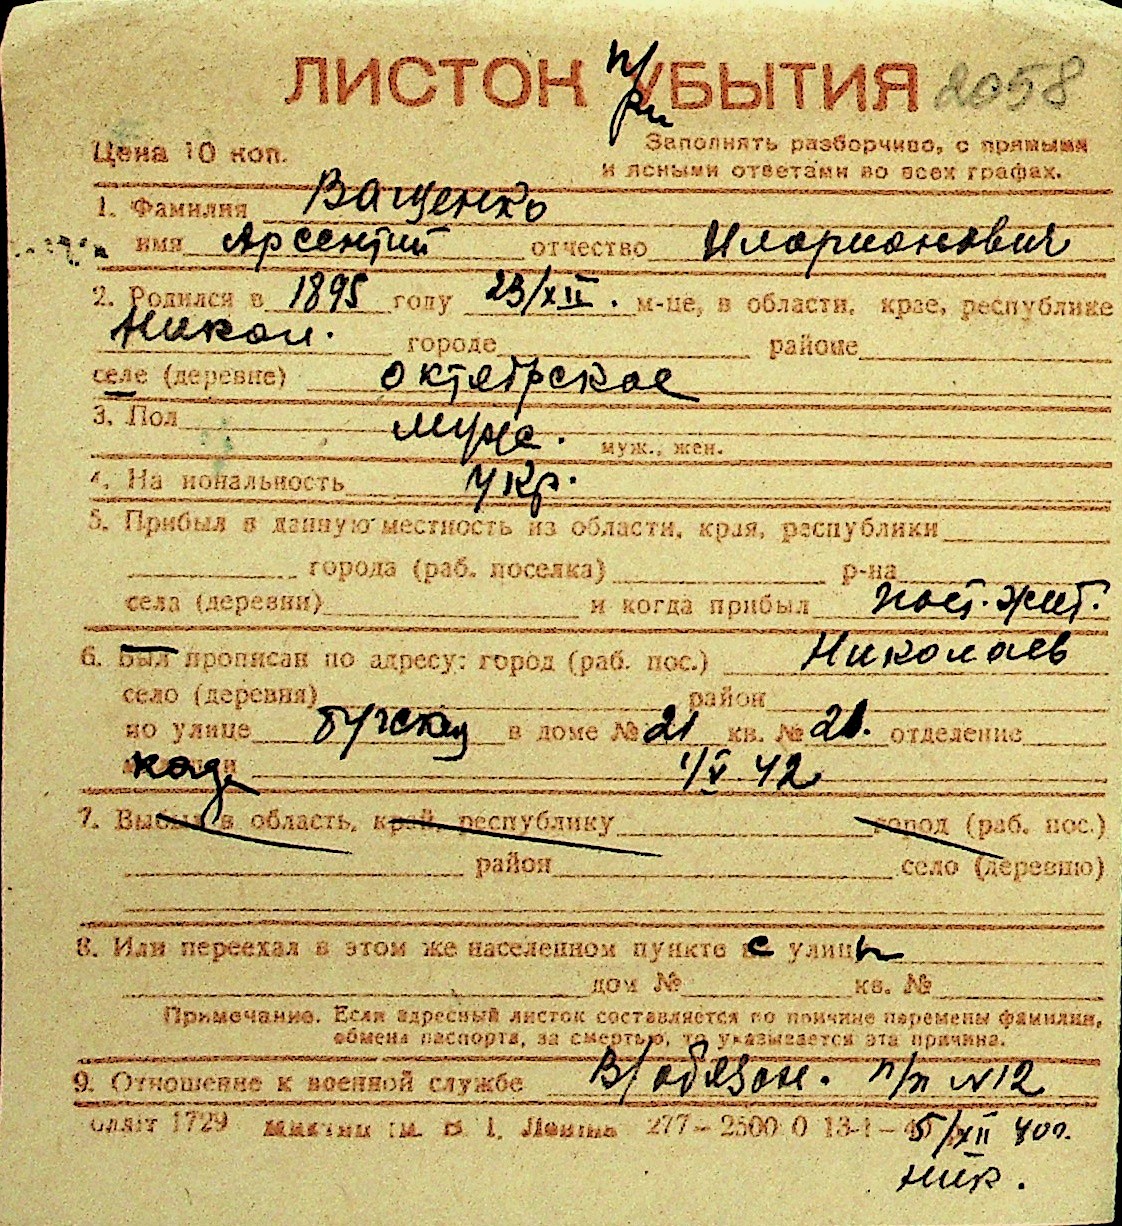 ЛИСТОК УБЫТИЯ при 2058
Цена 10 коп. Заполнять разборчиво, с прямыми
и ясными ответами во всех графах.
1. Фамилия Ващенко
имя Арсентий отчество Иларионович
2. Родился в 1895 году 23/XII. м-це, в области, крае, республике
Никол. городе районе
селе (деревне) октябрское
3. Пол муж. муж., жен.
4. На иональность укр.
5. Прибыл в данную местность из области, края, республики
города (раб. поселка) р-на
села (деревни) и когда прибыл пост. жит.
6. Был прописан по адресу: город (раб. пос.) Николаев
село (деревня) район
по улице бугская в доме № 21 кв. № 21. отделение
когда 1/V 42
7. Выбыл в область, край, республику город (раб. пос.)
район село (деревню)
8. Или переехал в этом же населенном пункте с улицы
дом № кв. №
Примечание. Если адресный листок составляется по причине перемены фамилии,
обмена паспорта, за смертью, то указывается эта причина.
9. Отношение к военной службе В/обязан. п/п №12
1729 Ленина 277–2500 0 5/XII 40г.
ник.